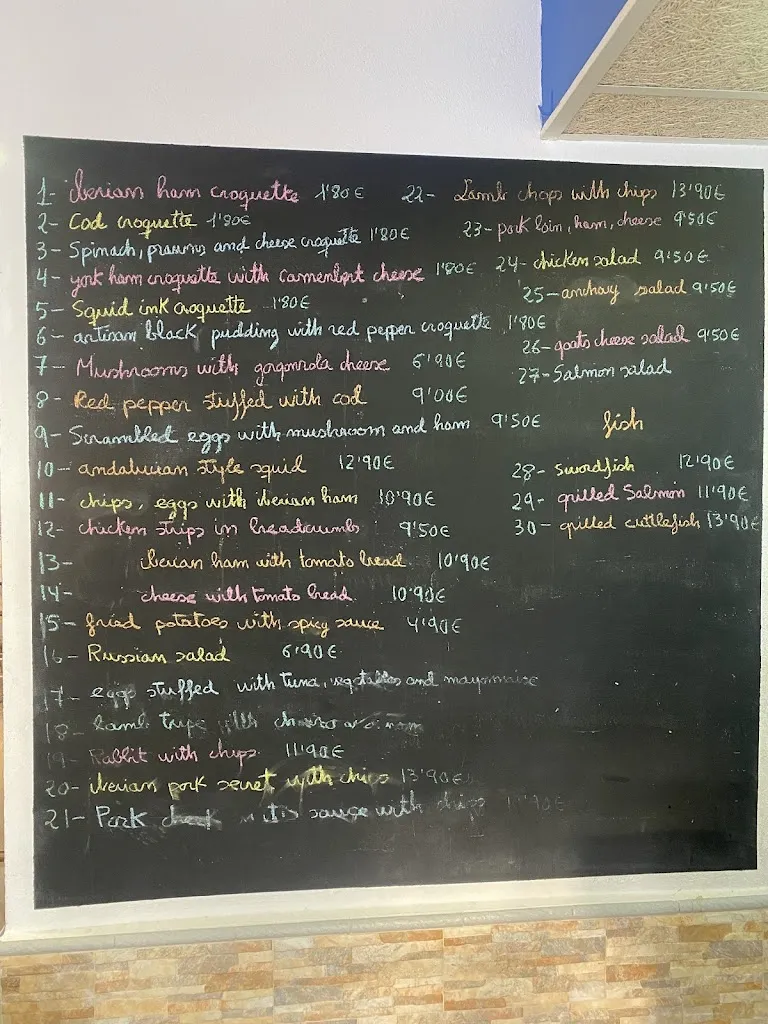 1- iberian ham croquette 1'80€
2- Cod croquette 1'80€
3- Spinach, prawns and cheese croquette 1'80€
4- york ham croquette with camembert cheese 1'80€
5- Squid ink croquette 1'80€
6- artisan black pudding with red pepper croquette 1'80€
7- Mushrooms with gorgonrola cheese 6'90€
8- Red pepper stuffed with cod 9'00€
9- Scrambled eggs with mushroom and ham 9'50€
10- andalucian style squid 12'90€
11- chips, eggs with iberian ham 10'90€
12- chicken strips in breadcrumbs 9'50€
13- iberian ham with tomato bread 10'90€
14- cheese with tomato bread 10'90€
15- fried potatoes with spicy sauce 4'90€
16- Russian salad 6'90€
17- eggs stuffed with tuna, vegetables and mayonnaise
18- Lamb trips with
19- Rabbit with chips 11'90€
20- iberian pork secret with chips 13'90€
21- Pork cheek in its sauce with chips
22- Lamb chops with chips 13'90€
23- pork loin, ham, cheese 9'50€
24- chicken salad 9'50€
25- anchovy salad 9'50€
26- goats cheese salad 9'50€
27- Salmon salad
fish
28- swordfish 12'90€
29- grilled Salmon 11'90€
30- grilled cuttlefish 13'90€